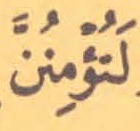 لَتُؤْمِنُنَّ